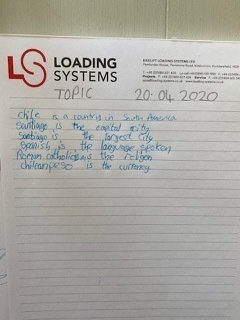 LS LOADING SYSTEMS
EASILIFT LOADING SYSTEMS LTD
TOPIC 20.04.2020
chile is a country in South America
Santiago is the capital city
Santiago is the largest city
Spanish is the language spoken
Roman catholic is the religon
chilean peso is the currency